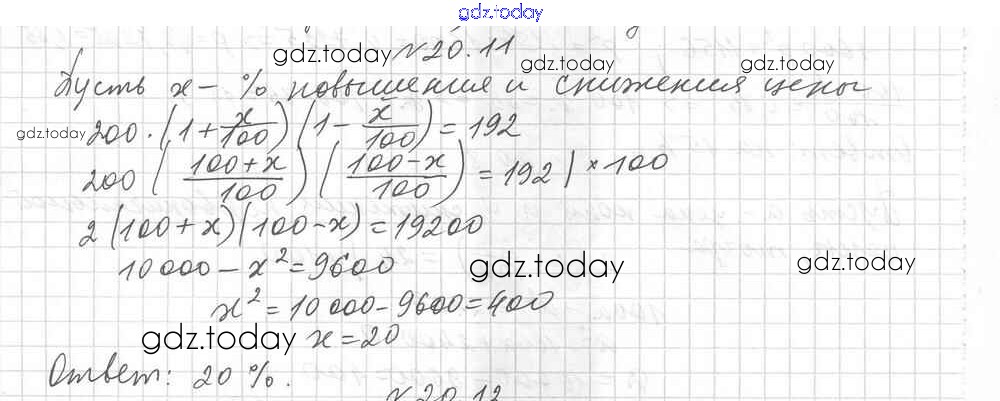 gdz.today
gdz.today №20.11 gdz.today gdz.today
Пусть x - % повышения и снижения цены
gdz.today 200·(1+x/100)(1-x/100)=192
200((100+x)/100)((100-x)/100)=192|×100
2(100+x)(100-x)=19200
10000-x²=9600 gdz.today gdz.today
x²=10000-9600=400
gdz.today x=20
Ответ: 20%.
№20.12